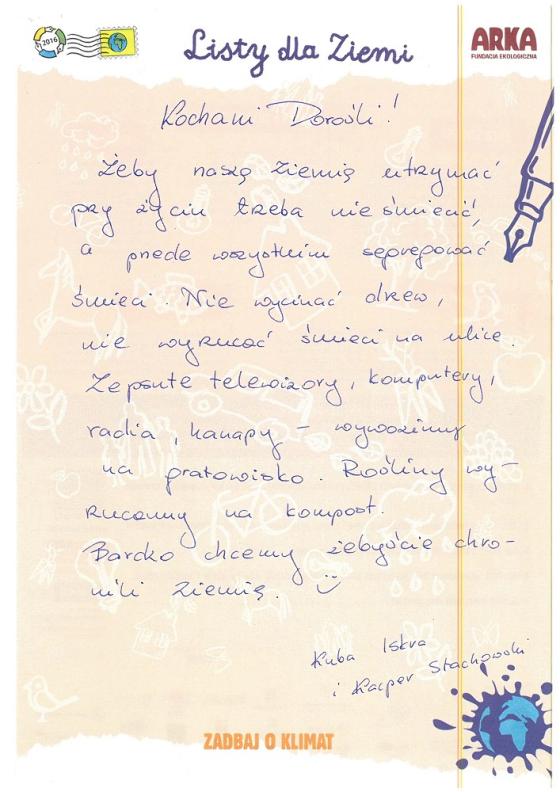 2016
Listy dla Ziemi
ARKA
FUNDACJA EKOLOGICZNA
Kochani Dorośli!
Żeby naszą Ziemię utrzymać
przy życiu trzeba nie śmiecić,
a przede wszystkim segregować
śmieci. Nie wycinać drzew,
nie wyrzucać śmieci na ulice.
Zepsute telewizory, komputery,
radia, kanapy – wywozimy
na gratowisko. Rośliny wy-
rzucamy na kompost.
Bardzo chcemy żebyście chro-
nili Ziemię.
Kuba Iskra
i Kacper Stachowski
ZADBAJ O KLIMAT